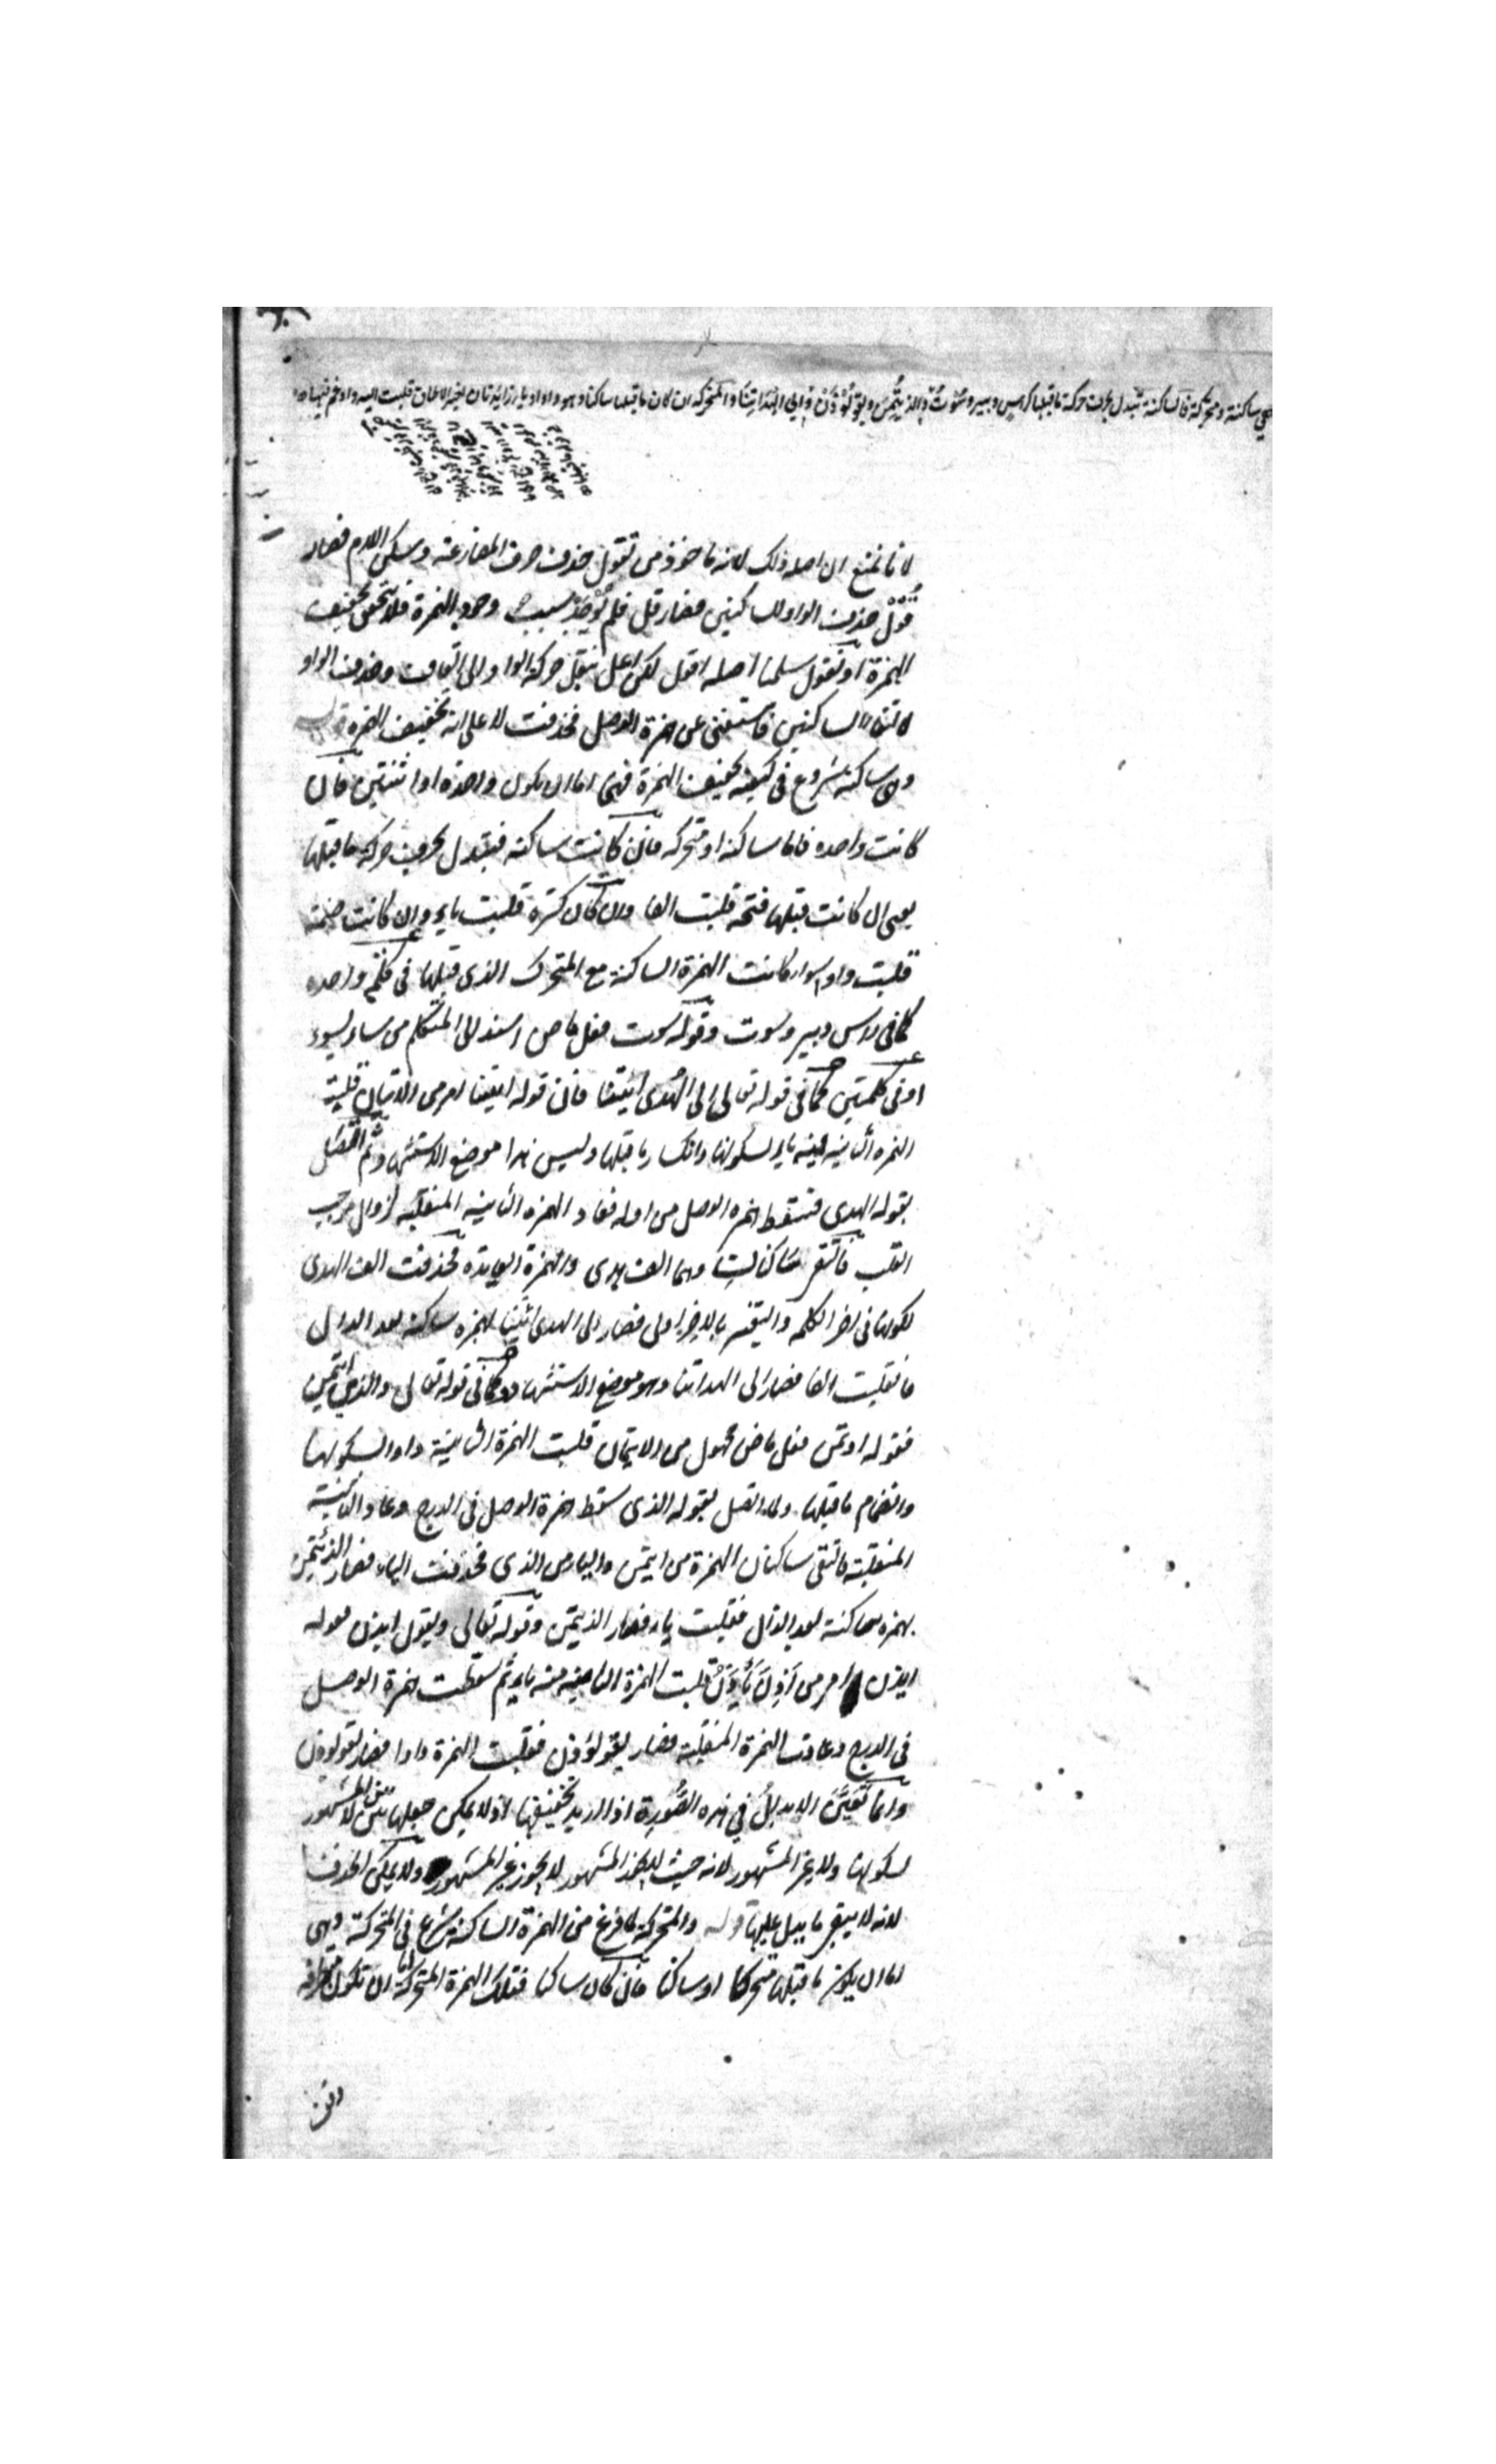 هي ساكنة ومتحركة فالساكنة تبدل بحرف حركة ما قبلها كراس وبير وسوت والذيتمن ويقولوذن والى الهداتنا والمتحركة ان كان ما قبلها ساكنا وهو واو او يا زايدتان لغير الالحاق قلبت اليه وادغم فيها
لانا نمنع ان اصله ذلك لانه ماخوذ من تقول حذف حرف المضارعة وسكن اللام فصار
قول حذف الواو للساكنين فصار قل فلم يوجد بسبب وجود الهمزة فلا يتحقق تخفيف
الهمزة او نقول سلمنا اصله اقول لكن اعل بنقل حركة الواو الى القاف وحذف الواو
لالتقاء الساكنين فاستغنى عن همزة الوصل فحذفت لا على انه تخفيف الهمزة قوله
وهى ساكنة شروع فى كيفية تخفيف الهمزة فهى اما ان يكون واحدة او اثنتين فان
كانت واحدة فاما ساكنة او متحركة فان كانت ساكنة فيبدل بحرف حركة ما قبلها
يعنى ان كانت قبلها فتحة قلبت الفا وان كان كسرة قلبت ياء وان كانت ضمة
قلبت واوا سواء كانت الهمزة الساكنة مع المتحرك الذى قبلها فى كلمة واحدة
كما فى راس وبير وسوت وقوله سوت فعل ماض اسند الى المتكلم من ساء يسوء
او فى كلمتين كما فى قوله تعالى الى الهدى ائتنا فان قوله ايتنا امر من الاتيان قلبت
الهمزة الثانية منه ياء لسكونها وانكسار ما قبلها وليس هذا موضع الاستشهاد ثم اتصل
بقوله الهدى فتسقط همزة الوصل من اوله فعاد الهمزة الثانية المنقلبة لزوال موجب
القلب فالتقى ساكنان وهما الف هدى والهمزة العايدة فحذفت الف الهدى
لكونها فى اخر الكلمة والتغير بالاخر اولى فصار الى الهدى ائتنا بهمزة ساكنة بعد الدال
فانقلبت الفا فصار الى الهداتنا وهو موضع الاستشهاد وكما فى قوله تعالى والذى ائتمن
فقوله اوتمن فعل ماض مجهول من الايتمان قلبت الهمزة الثانية واوا لسكونها
وانضمام ما قبلها ولما اتصل بقوله الذى سقط همزة الوصل فى الدرج وعاد الثانية
المنقلبة فالتقى ساكنان الهمزة من ايتمن والياء من الذى فحذفت الياء فصار الذئتمن
بهمزة ساكنة بعد الذال فقلبت ياء فصار الذيتمن وقوله تعالى ويقول ايذن فقوله
ايذن امر من اذن ياذن قلبت الهمزة الثانية منه ياء ثم سقطت همزة الوصل
فى الدرج وعادت الهمزة المنقلبة فصار يقولؤذن فقلبت الهمزة واوا فصار يقولوذن
وانما تعين الابدال فى هذه الصورة اذا اريد تخفيفها اذ لا يمكن جعلها بين بين المشهور
لسكونها ولا غير المشهور لانه حيث لا يجوز المشهور لا يجوز غير المشهور ولا يمكن الحذف
لانه لا يبقى ما يدل عليها قوله والمتحركة لما فرغ من الهمزة الساكنة شرع فى المتحركة وهى
اما ان يكون ما قبلها متحركا او ساكنا فان كان ساكنا فتلك الهمزة المتحركة اما ان تكون